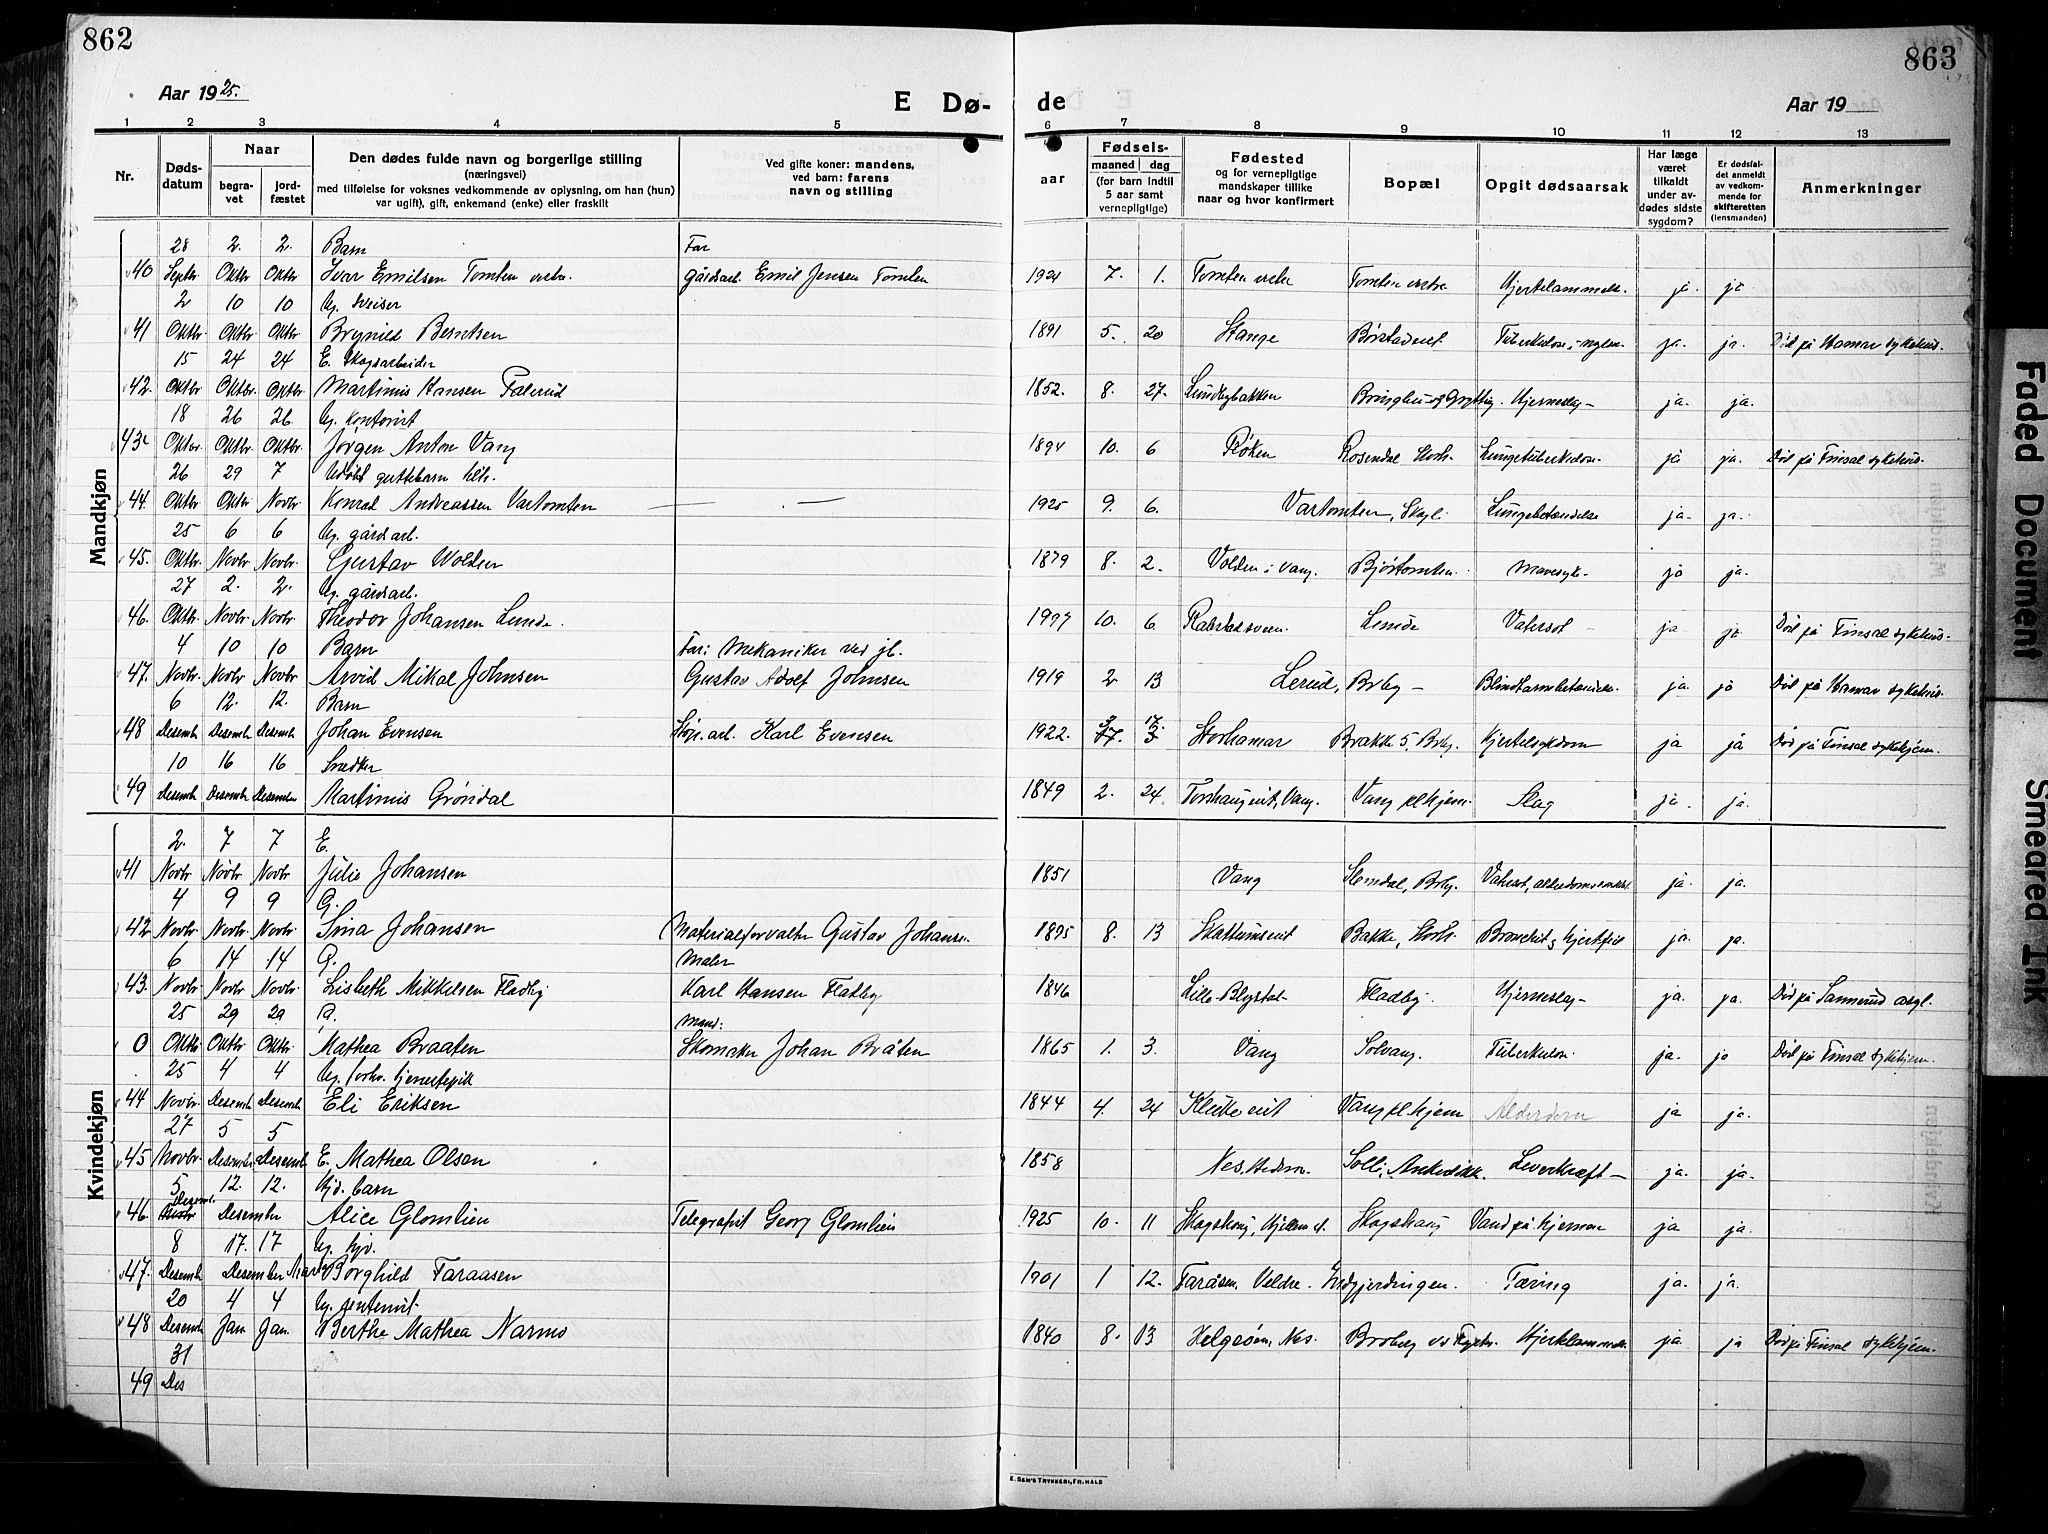 862
863
Aar 1925.
E Dø-
de
Aar 19
1 2 3 4 5
6 7 8 9 10 11 12 13
Nr.
Døds-
datum
Naar
begra-
vet
jord-
fæstet
Den dødes fulde navn og borgerlige stilling
(næringsvei)
med tilføielse for voksnes vedkommende av oplysning, om han (hun)
var ugift), gift, enkemand (enke) eller fraskilt
Ved gifte koner: mandens,
ved barn: farens
navn og stilling
Fødsels-
aar
maaned dag
(for barn indtil
5 aar samt
vernepligtige)
Fødested
og for vernepligtige
mandskaper tillike
naar og hvor konfirmert
Bopæl
Opgit dødsaarsak
Har læge
været
tilkaldt
under av-
dødes sidste
sygdom?
Er dødsfal-
det anmeldt
av vedkom-
mende for
skifteretten
(lensmanden)
Anmerkninger
Mandkjøn
28 2. 2. Barn Far
40 Septbr. Oktbr Oktbr Ivar Emilsen Tomten vestre. gårdsarb. Emil Jensen Tomten 1924 7. 1. Tomten vestre Tomten vestre Hjertelammelse. ja. ja
2 10 10 Ug. sveiser
41 Oktbr. Oktbr. Oktbr Brynild Berntsen 1891 5. 20 Stange Tuberkulose, ja. ja. Død på Hamar sykehus.
15 24 24 E. Skogsarbeider
42. Oktbr Oktbr. Oktbr Martinus Hansen 1852. 8. 27. Lundbybakken Hjerneslag ja. ja.
18 26 26 Ug. kontorist
43 Oktbr. Oktbr. Oktbr. Jørgen Anton Vang 1894 10. 6 Røken Rosendal Storh. Lungetuberkulose ja ja. Død på Finsal sykehus.
26 29 7 guttebarn
44. Oktbr Oktbr Novbr Konrad Andreassen Vartomten — — 1925 9. 6. Vartomten, Lungebetændelse ja. ja.
25 6 6 Ug. gårdsarb.
45. Oktbr. Novbr. Novbr. Gustav Volden 1879 8. 2. Volden i Vang. Bjørtomten. Mavesyke. ja ja.
27 2. 2. Ug. gårdsarb.
46. Oktbr. Novbr. Novbr. Theodor Johansen Lunde. 10. 6. Lunde Vatersot ja ja Død på Finsal sykehus.
4 10 10 Barn Far: Mekaniker ved jb.
47. Novbr. Novbr Novbr Arvid Mikal Johnsen Gustav Adolf Johnsen 1919 2 13 Lerud, Brby — Blindtarmbetændelse. ja. ja Død på Hamar sykehus.
6 12. 12. Barn
48 Desembr Desembr Desembr Johan Evensen Karl Evensen 1922. 3 17 Storhamar Brakke 5, Brby. Kjertelsykdom ja ja Død på Finsal sykehjem.
10 16 16 Snedker
49 Desembr Desembr Desember Martinus Grøndal 1849 2. 24 Vang. Vang plhjem. Slag ja. ja.
Kvindekjøn
2. 7 7 E.
41 Novbr Novbr Novbr Julie Johansen 1851 Vang Slemdal, Brby. Vatersot, ja. ja.
4 9 9 G.
42 Novbr. Novbr. Novbr Sina Johansen Materialforvalter Gustav Johansen 1895 8. 13 Bakke, Storh. ja. ja.
6 14 14 G. Maler
43. Novbr Novbr Novbr Lisbeth Mikkelsen Fladby Karl Hansen Fladby 1846 Fladby. Hjerneslag ja. ja. Død på Sannerud asyl.
25 29 29 G. Mand:
0 Oktbr Oktbr Oktbr. Mathea Braaten Skomaker Johan Bråten 1865 1. 3. Vang Solvang. Tuberkulose. ja. ja Død på Finsal sykehjem.
25 4 4 Ug. forhv. tjenestepik
44 Novbr. Desembr Desembr Eli Eriksen 1844 4. 24 Vang plhjem Alderdom ja ja.
27 5 5
45 Novbr. Desember Desembr E. Mathea Olsen 1858 Nes, Hedem. Leverkræft — ja ja.
5 12. 12. Hjd. barn
46. Desembr. Desember Alice Glomlien Telegrafist Georg Glomlien 1925 10. 11 Skogshaug Vand på hjernen ja ja.
8 17. 17 Ug. hjv.
47. Desembr Desember Borghild Faraasen 1901 1 12. Faråsen, Veldre. Tæring ja. ja.
20 4 4 Ug.
48 Desembr Jan. Jan. Berthe Mathea Narmo 1840 8. 13 Nes. Hjertelammelse. ja. ja Død på Finsal sykehjem.
31
49 Des
E. SEM'S TRYKKERI, FR. HALD
Faded Document
Smeared Ink